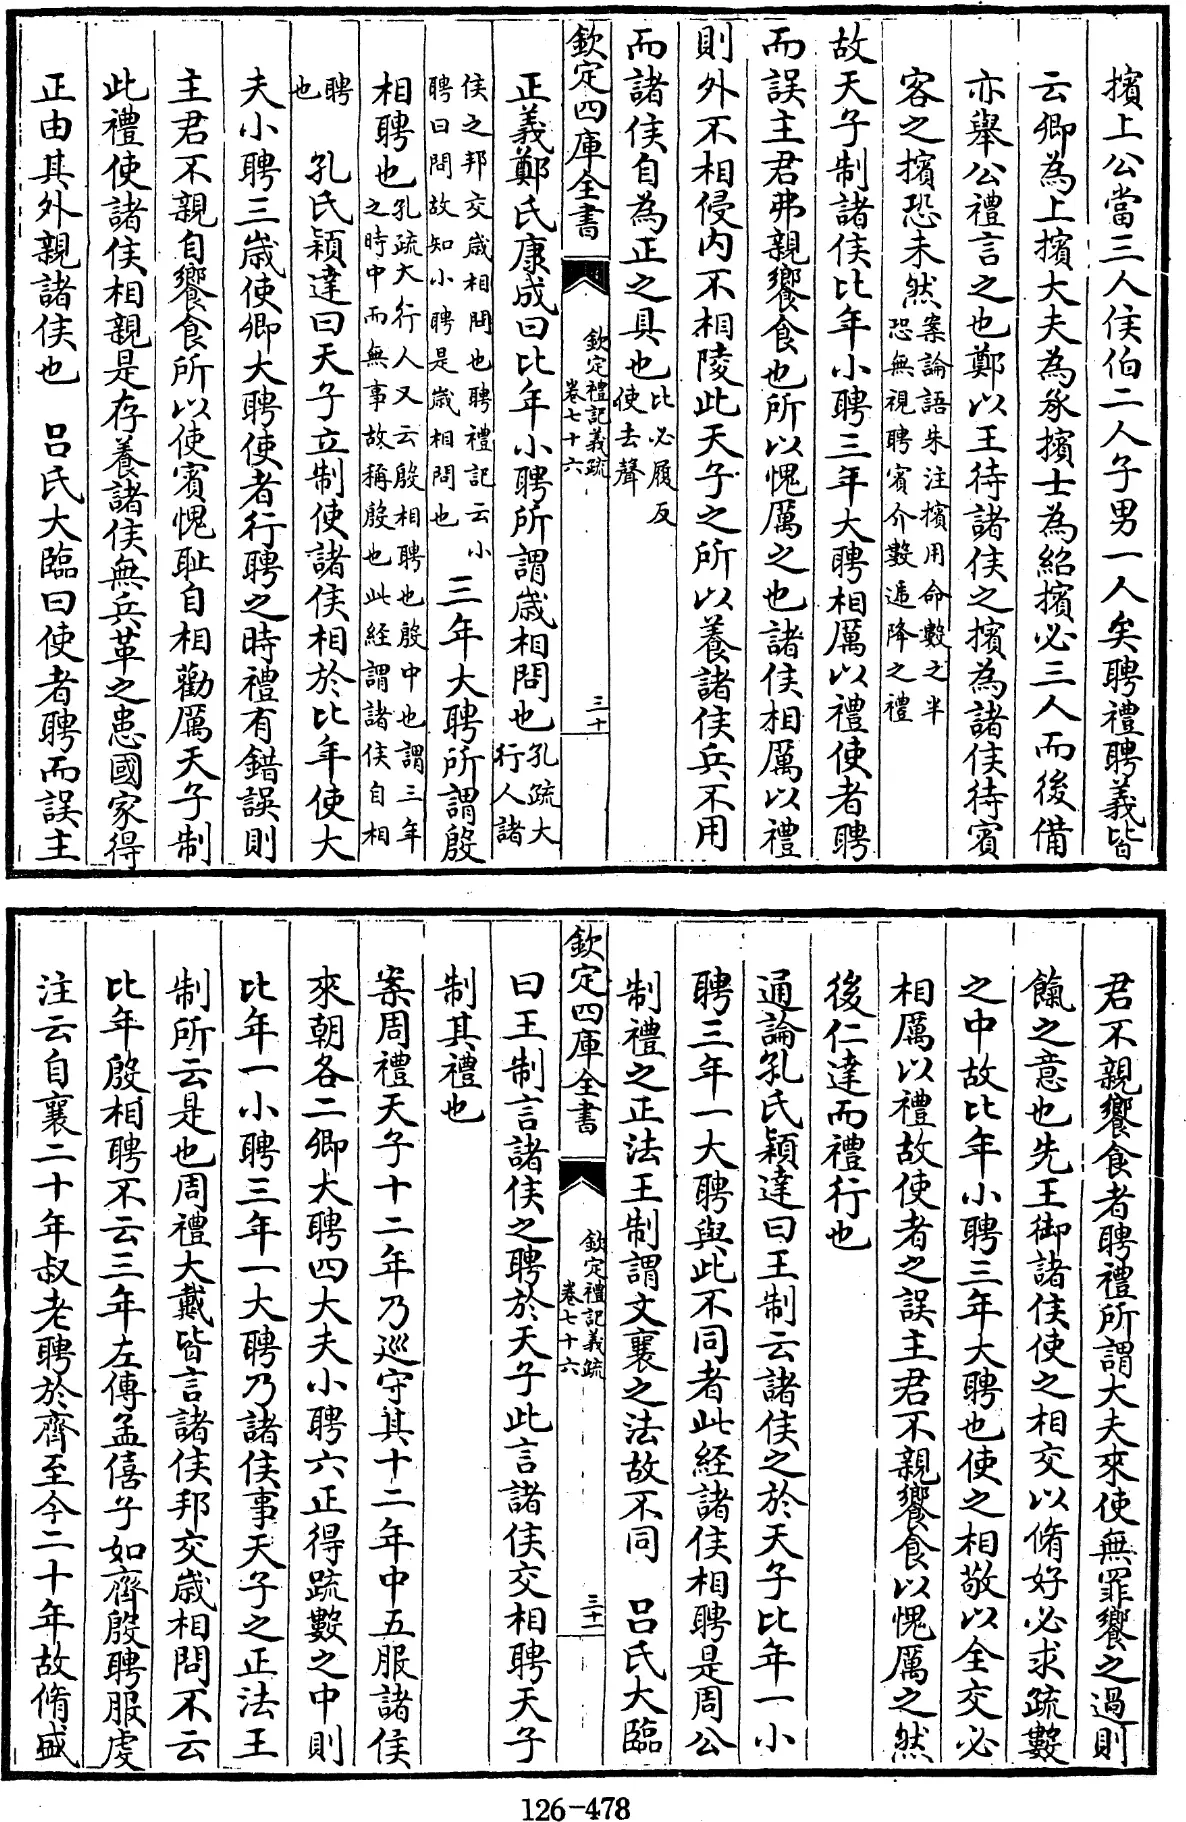 擯上公當三人侯伯二人子男一人矣聘禮聘義皆
云卿為上擯大夫為承擯士為紹擯必三人而後備
亦舉公禮言之也鄭以王待諸侯之擯為諸侯待賓
客之擯恐未然案論語朱注擯用命數之半恐無視聘賓介數遞降之禮
故天子制諸侯比年小聘三年大聘相厲以禮使者聘
而誤主君弗親饗食也所以愧厲之也諸侯相厲以禮
則外不相侵內不相陵此天子之所以養諸侯兵不用
而諸侯自為正之具也比必履反使去聲
欽定四庫全書 欽定禮記義疏卷七十六 三十
正義鄭氏康成曰比年小聘所謂歲相問也孔疏大行人諸
侯之邦交歲相問也聘禮記云小聘曰問故知小聘是歲相問也 三年大聘所謂殷
相聘也孔疏大行人又云殷相聘也殷中也謂三年之時中而無事故稱殷也此經謂諸侯自相
聘也 孔氏穎達曰天子立制使諸侯相於比年使大
夫小聘三歲使卿大聘使者行聘之時禮有錯誤則
主君不親自饗食所以使賓愧耻自相勸厲天子制
此禮使諸侯相親是存養諸侯無兵革之患國家得
正由其外親諸侯也 呂氏大臨曰使者聘而誤主
君不親饗食者聘禮所謂大夫來使無罪饗之過則
餼之意也先王御諸侯使之相交以脩好必求疏數
之中故比年小聘三年大聘也使之相敬以全交必
相厲以禮故使者之誤主君不親饗食以愧厲之然
後仁達而禮行也
通論孔氏穎達曰王制云諸侯之於天子比年一小
聘三年一大聘與此不同者此經諸侯相聘是周公
制禮之正法王制謂文襄之法故不同 呂氏大臨
欽定四庫全書 欽定禮記義疏卷七十六 三十一
曰王制言諸侯之聘於天子此言諸侯交相聘天子
制其禮也
案周禮天子十二年乃巡守其十二年中五服諸侯
來朝各二卿大聘四大夫小聘六正得疏數之中則
比年一小聘三年一大聘乃諸侯事天子之正法王
制所云是也周禮大戴皆言諸侯邦交歲相問不云
比年殷相聘不云三年左傳孟僖子如齊殷聘服虔
注云自襄二十年叔老聘於齊至今二十年故脩盛
126-478